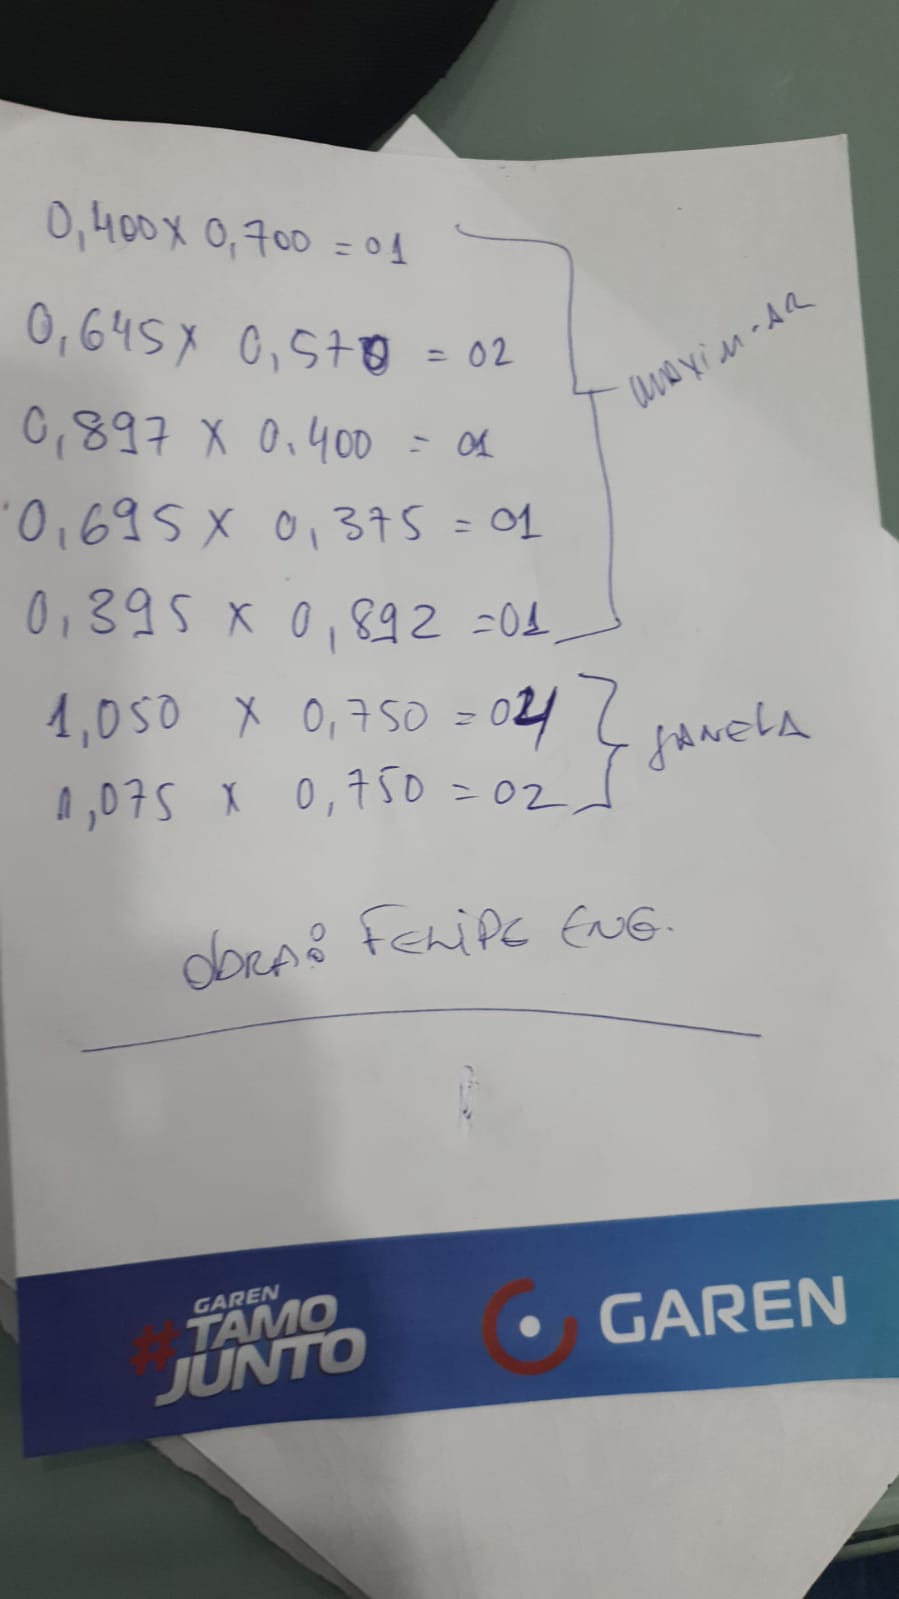 0,400 x 0,700 = 01
0,645 x 0,570 = 02
0,897 x 0.400 = 01
0,695 x 0,375 = 01
0,395 x 0,892 = 01
maxim-AR
1,050 x 0,750 = 04
1,075 x 0,750 = 02
JANELA
OBRA: FELIPE ENG.
GAREN
#TAMO
JUNTO
GAREN